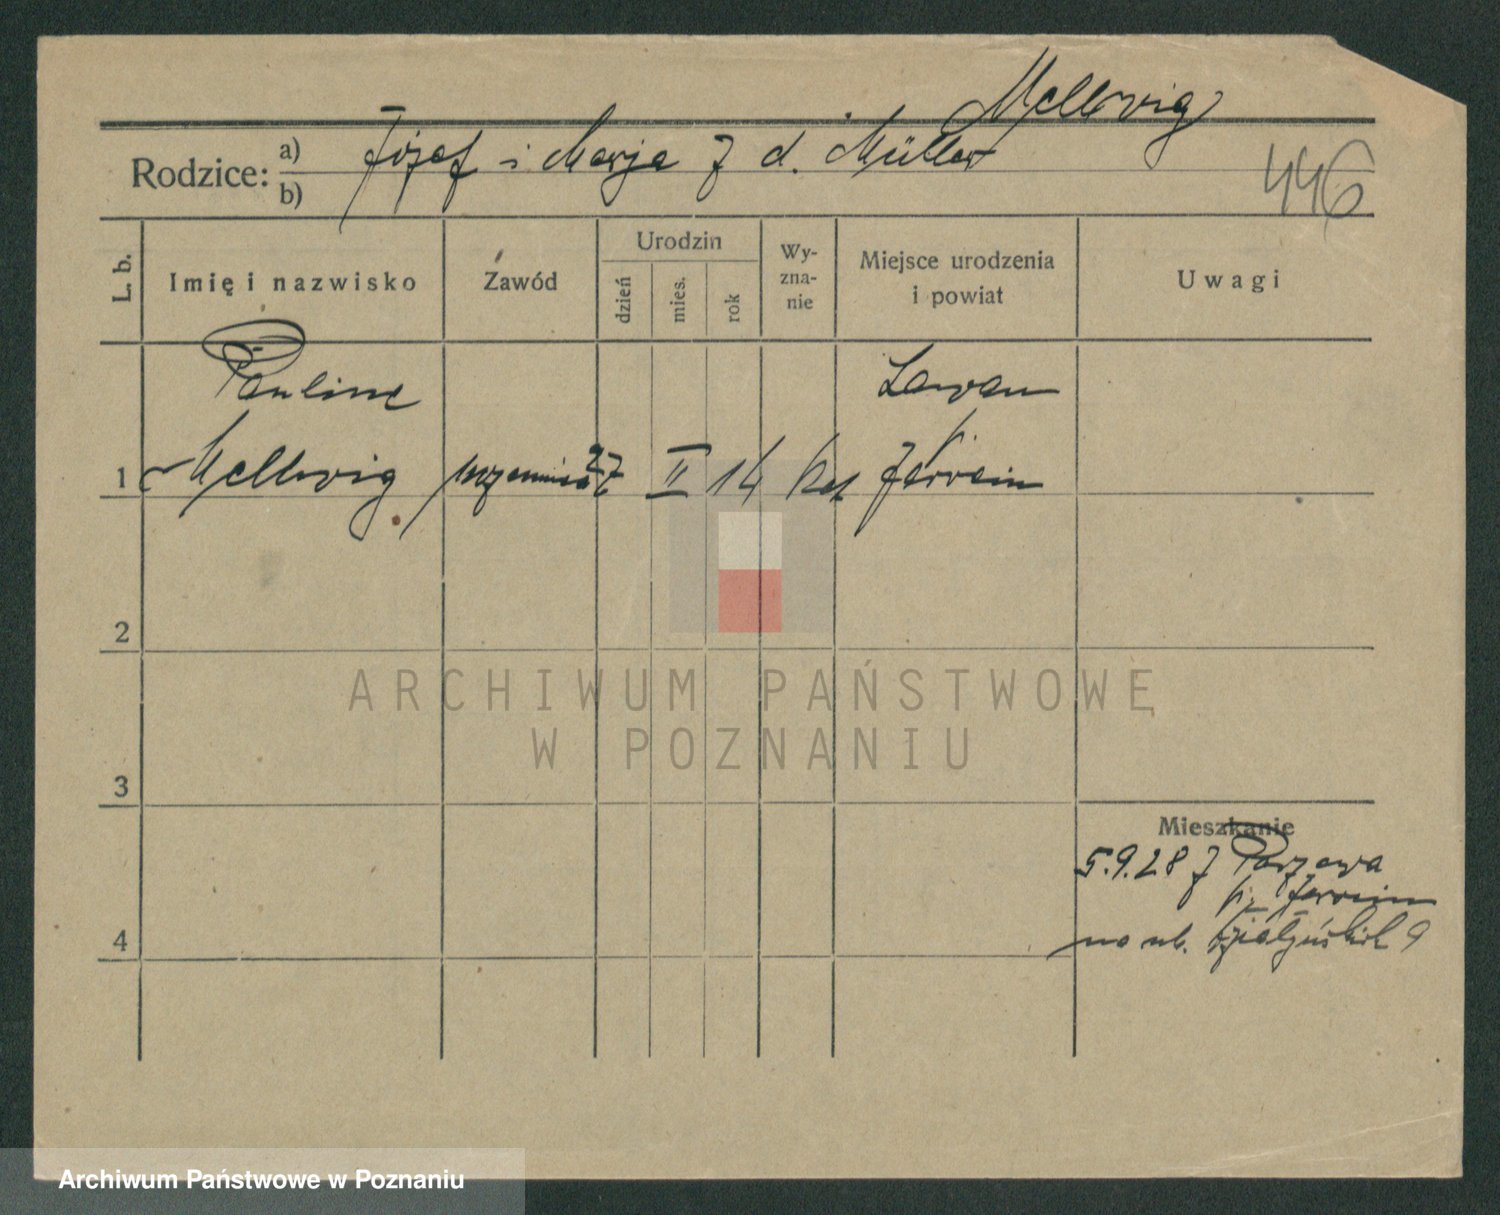 Mellwig
Rodzice: a) Józef i Marja z d. Müller
b)
446
L. b.
Imię i nazwisko
Zawód
Urodzin
dzień
mies.
rok
Wy-
zna-
nie
Miejsce urodzenia
i powiat
Uwagi
Pauline
1 Mellwig
27 II 14 kat
p.
Jarocin
2
3
Mieszkanie
5.9.28 z
p. Jarocin
na ul. Działyńskich 9
4
ARCHIWUM PAŃSTWOWE
W POZNANIU
Archiwum Państwowe w Poznaniu